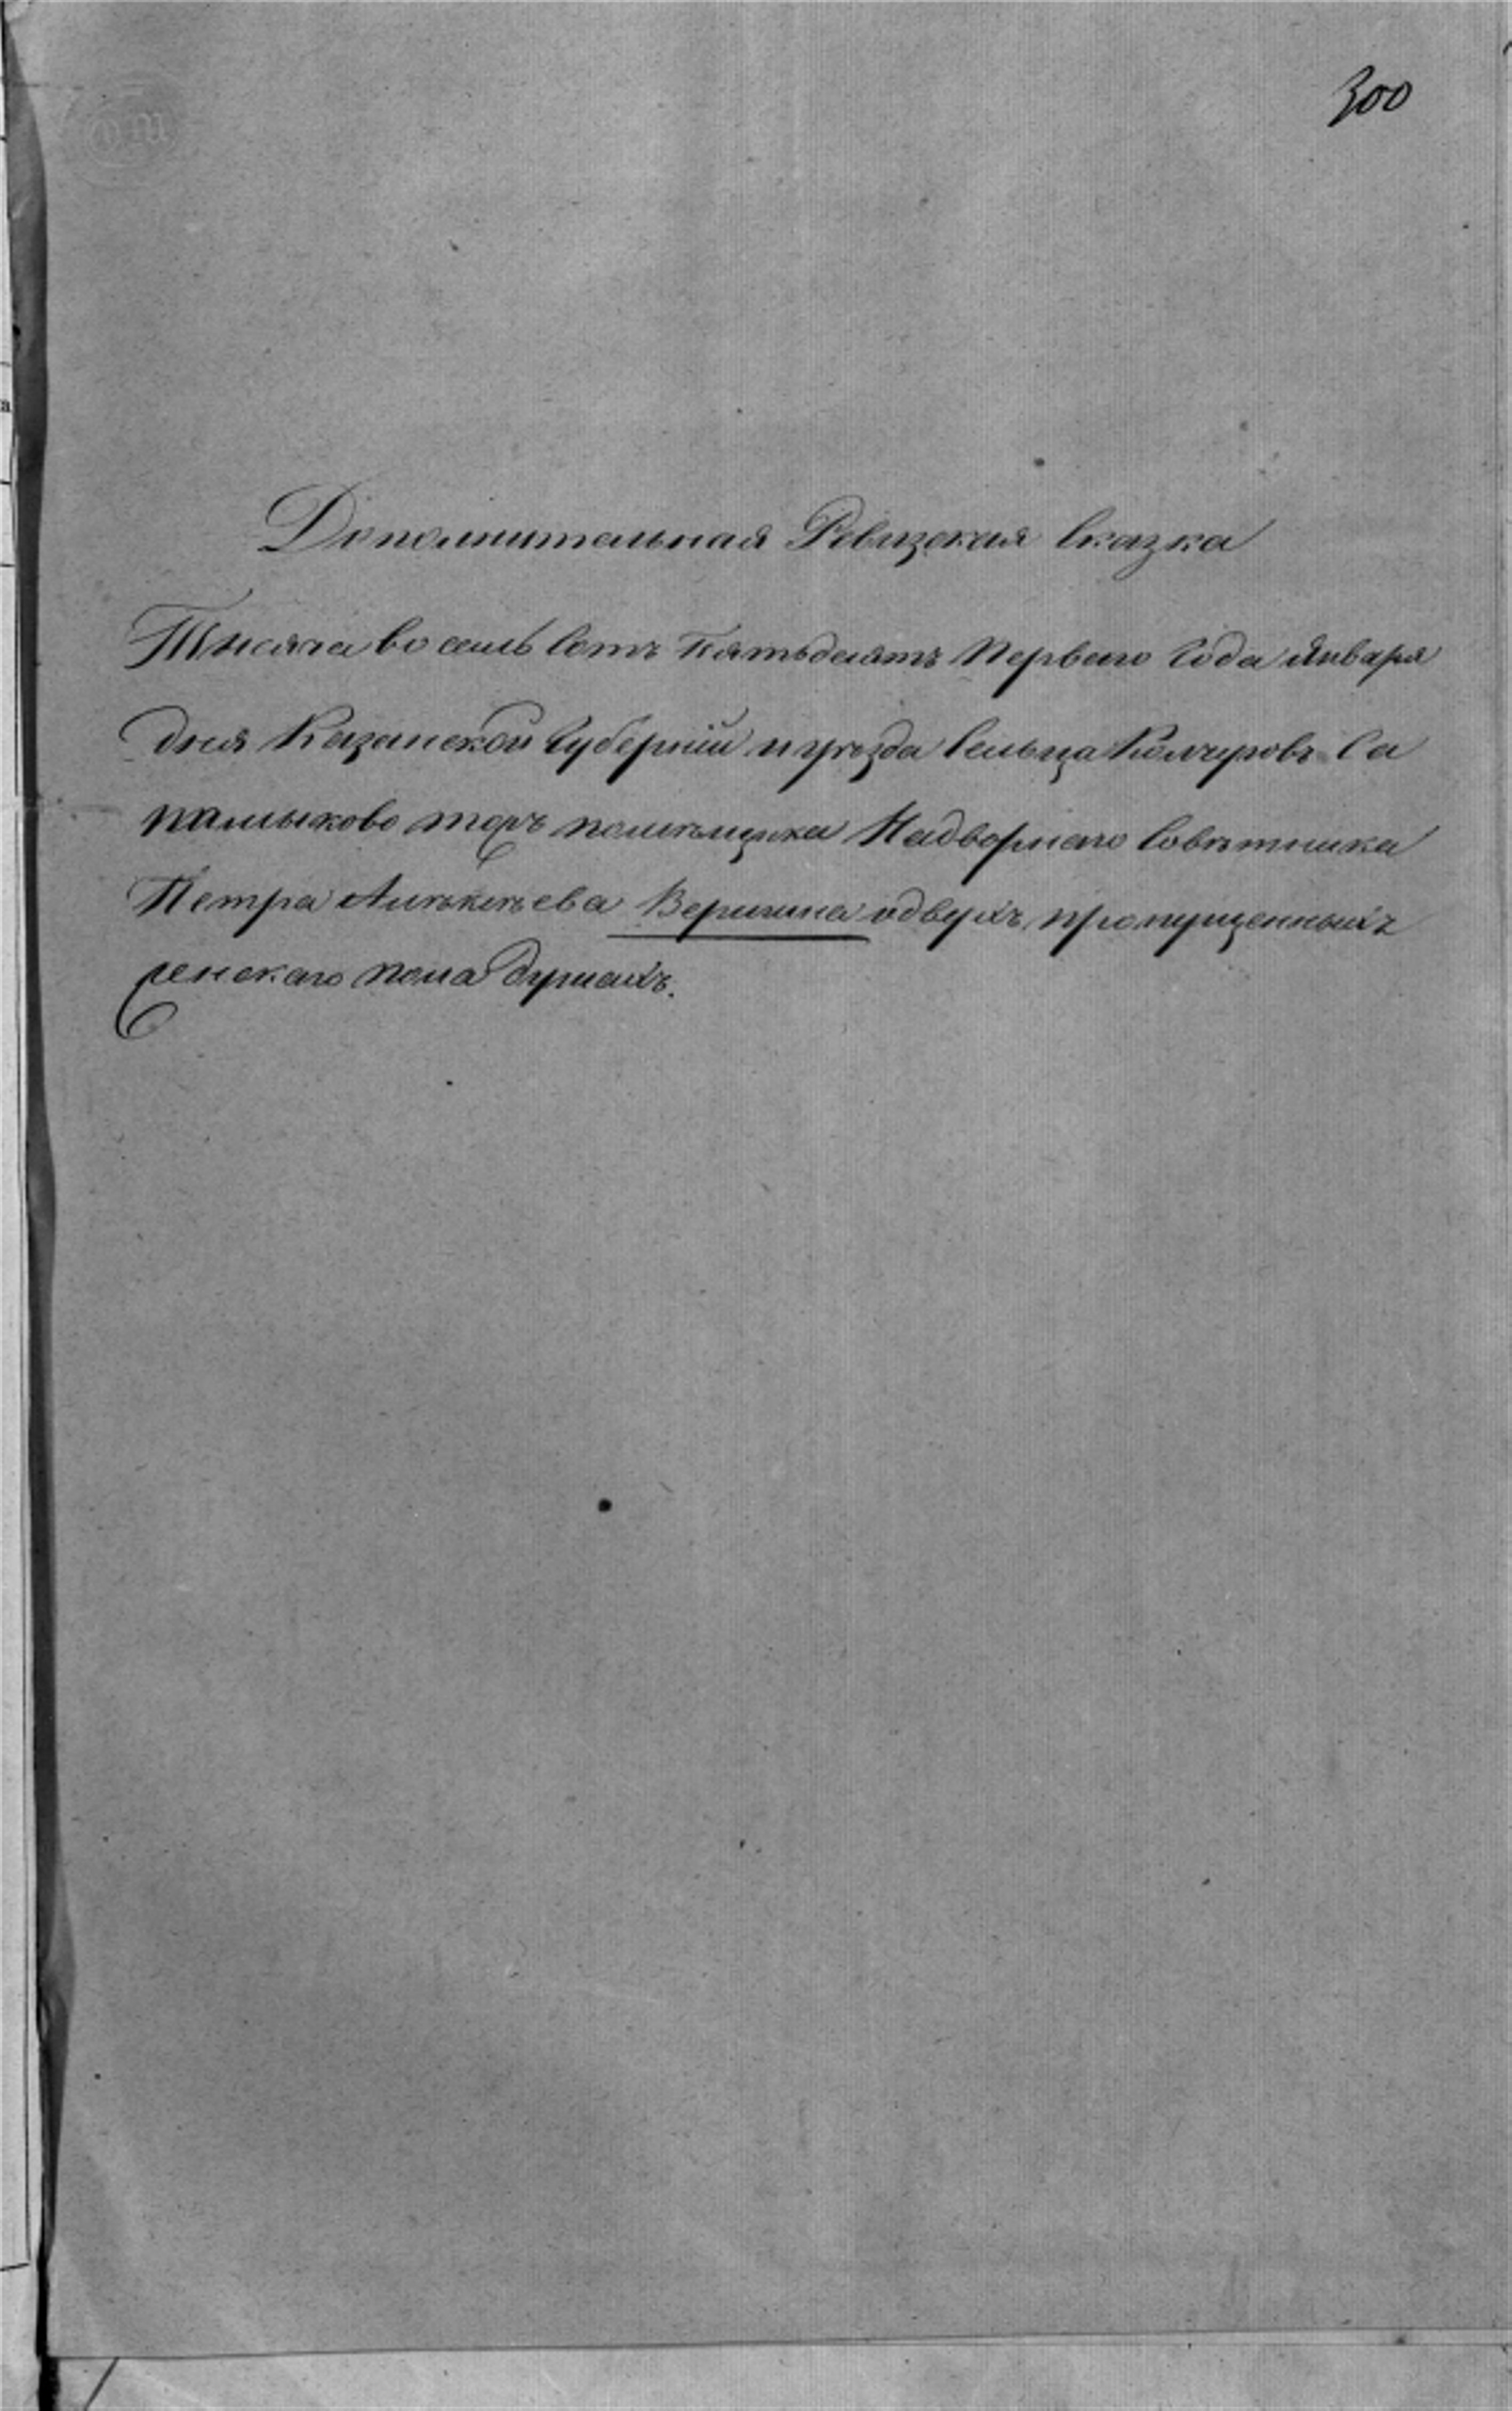 300
Дополнительная Ревизская сказка
Тысяча восемь сотъ пятьдесятъ перваго года Января
дня Казанской Губерніи и уѣзда сельца Кончуровъ Са
памыково тожъ помѣщика Надворнаго Совѣтника
Петра Веригина о двухъ пропущенныхъ
женскаго пола душахъ.